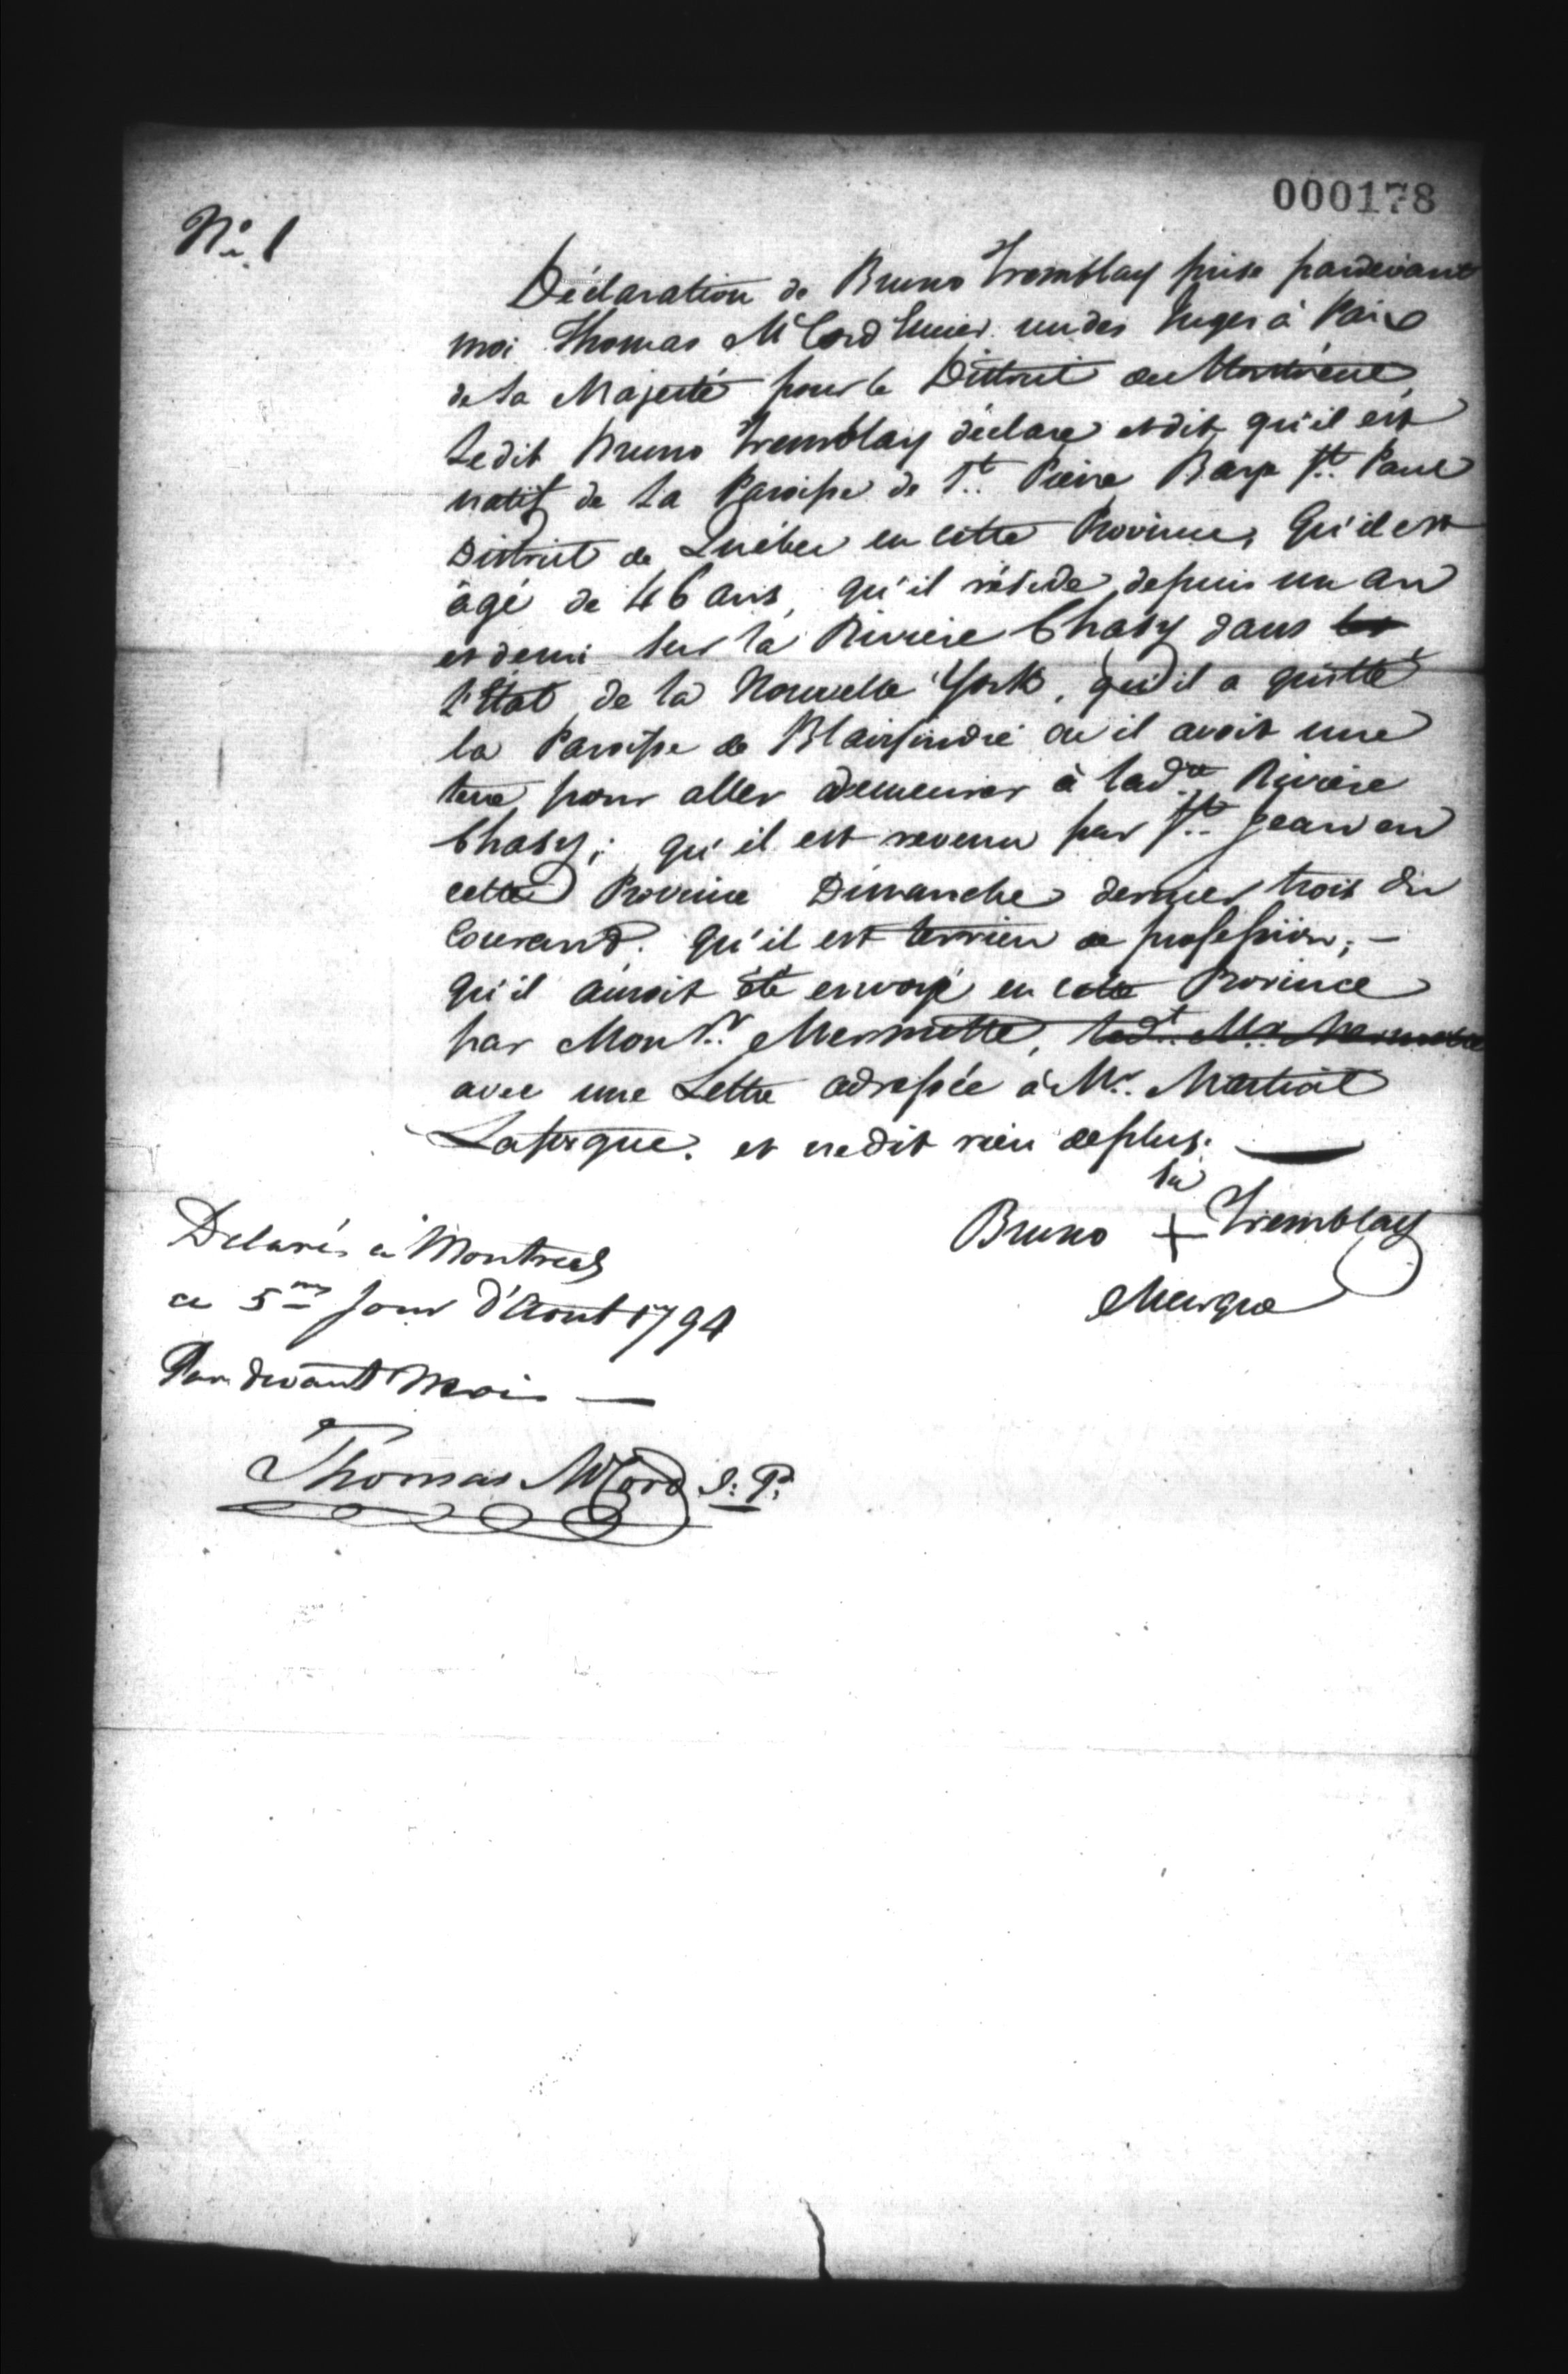 000178
No. 1
Déclaration de Bruno Tremblay prise pardevant
moi Thomas McCord Ecuier un des Juges à Paix
de Sa Majesté pour le District de Montréal,
Ledit Bruno Tremblay déclare et dit qu'il est
natif de la Paroisse de St. Pierre Baye St. Paul
District de Québec en cette Province, Qu'il est
âgé de 46 ans, qu'il réside depuis un an
et demi sur la Riviere Chasy dans les
l'Etat de la Nouvelle York, qu'il a quitté
la Paroisse de Blairfindie ou il avoit une
terre pour aller demeurer à lad.te Riviere
Chasy; qu'il est revenu par St. Jean en
cette Province Dimanche dernier trois du
Courand. Qu'il est terrien de profession; —
qu'il auroit été envoyé en cette Province
par Mons.r Mermette, led.t Mr. Mermette
avec une Lettre adressée à Mr. Martial
Laforgue. et ne dit rien de plus. —
sa
Bruno + Tremblay
Marque
Delarés à Montreal
ce 5me Jour d'Aout 1794
Par devant Moi —
Thomas McCord J: P: